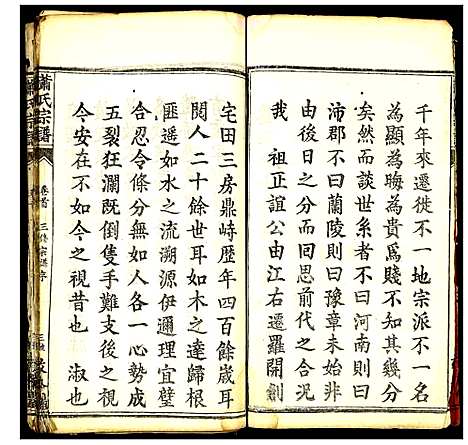 千年來遷徙不一地宗派不一名
為顯為晦為貴為賤不知其幾分
矣然而談世系者不曰河南則曰
沛郡不曰蘭陵則曰豫章未始非
由後日之分而回思前代之合況
我 祖正誼公由江右遷羅開創
宅田三房鼎峙歷年四百餘歲耳
閱人二十餘世耳如木之達歸根
匪遥如水之流溯源伊邇理宜璧
合忍令條分無如人各一心勢成
五裂狂瀾既倒隻手難支後之視
今安在不如今之視昔也 淑也
蕭氏宗譜
卷首 三修宗譜序